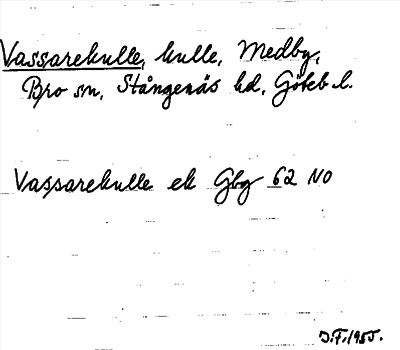 Vassarekulle, kulle, Medby,
Bro sn, Stångenäs hd, Göteb. l.
Vassarekulle ek Gbg 62 NO
J.F. 1955.